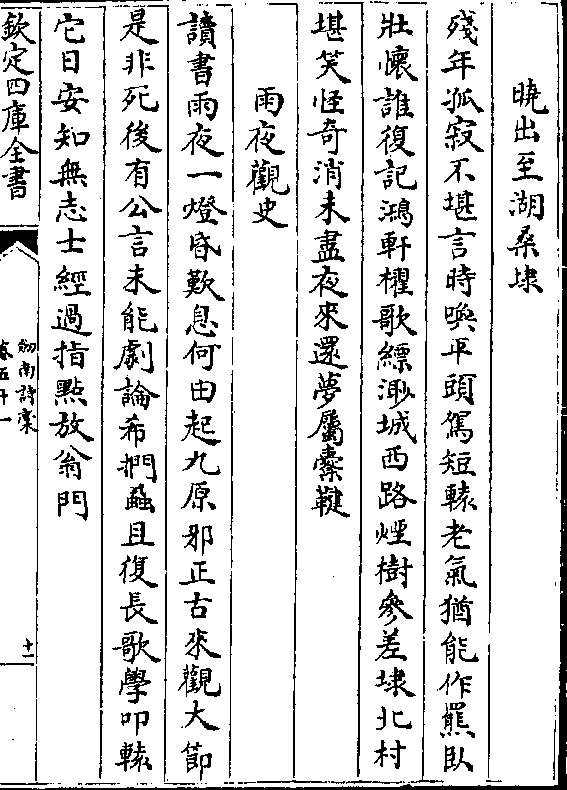 曉出至湖桑埭
殘年孤寂不堪言時喚平頭駕短轅老氣猶能作羆臥
壯懷誰復記鴻軒櫂歌縹渺城西路煙樹參差埭北村
堪笑怪奇消未盡夜來還夢屬櫜鞬
雨夜觀史
讀書雨夜一燈昏歎息何由起九原邪正古來觀大節
是非死後有公言未能劇論希捫蝨且復長歌學叩轅
它日安知無志士經過指點放翁門
欽定四庫全書
劒南詩槀
卷五十一
十一